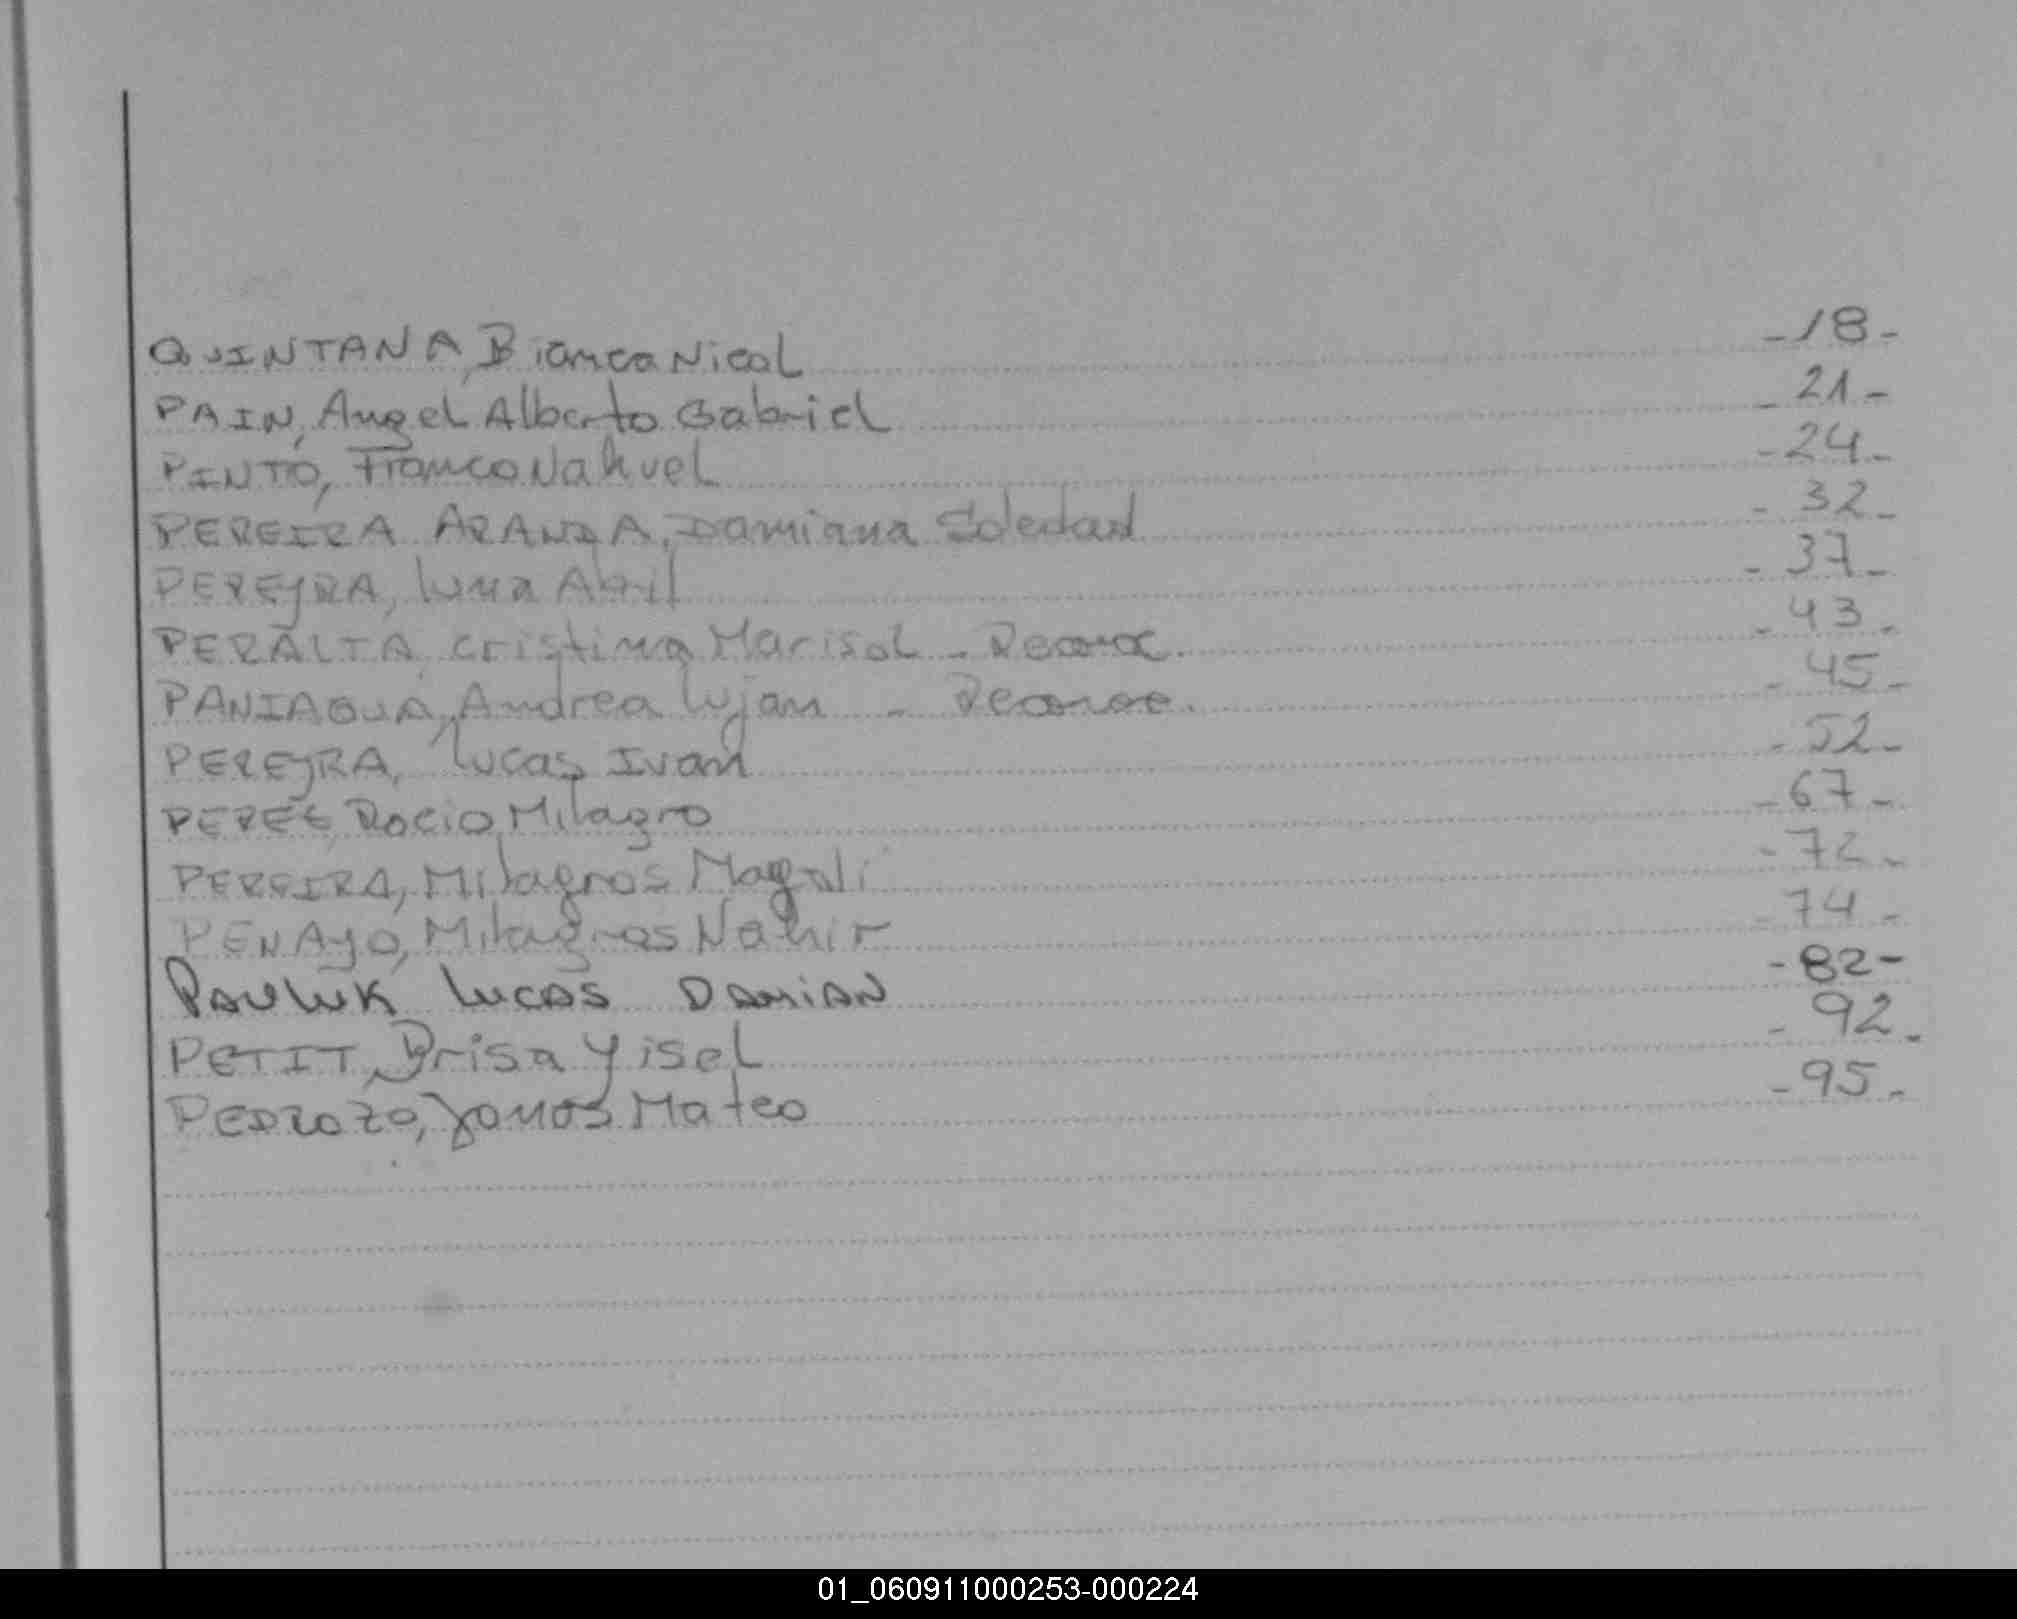 QUINTANA, Bianca Nicol -18-
PAIN, Angel Alberto Gabriel -21-
PINTO, Franco Nahuel -24-
PEREIRA ARANDA, Damiana Soledad -32-
PEREYRA, Luna Abril -37-
PERALTA, Cristina Marisol - -43-
PANIAGUA, Andrea Lujan - -45-
PEREYRA, Lucas Ivan -52-
PERES, Rocio Milagro -67-
PEREIRA, Milagros Magali -72-
PENAYO, Milagros Nahir -74-
PAWLUK LUCAS DAMIAN -82-
PETIT, Brisa Yisel -92-
PEDROZO, Jonas Mateo -95-
01_060911000253-000224